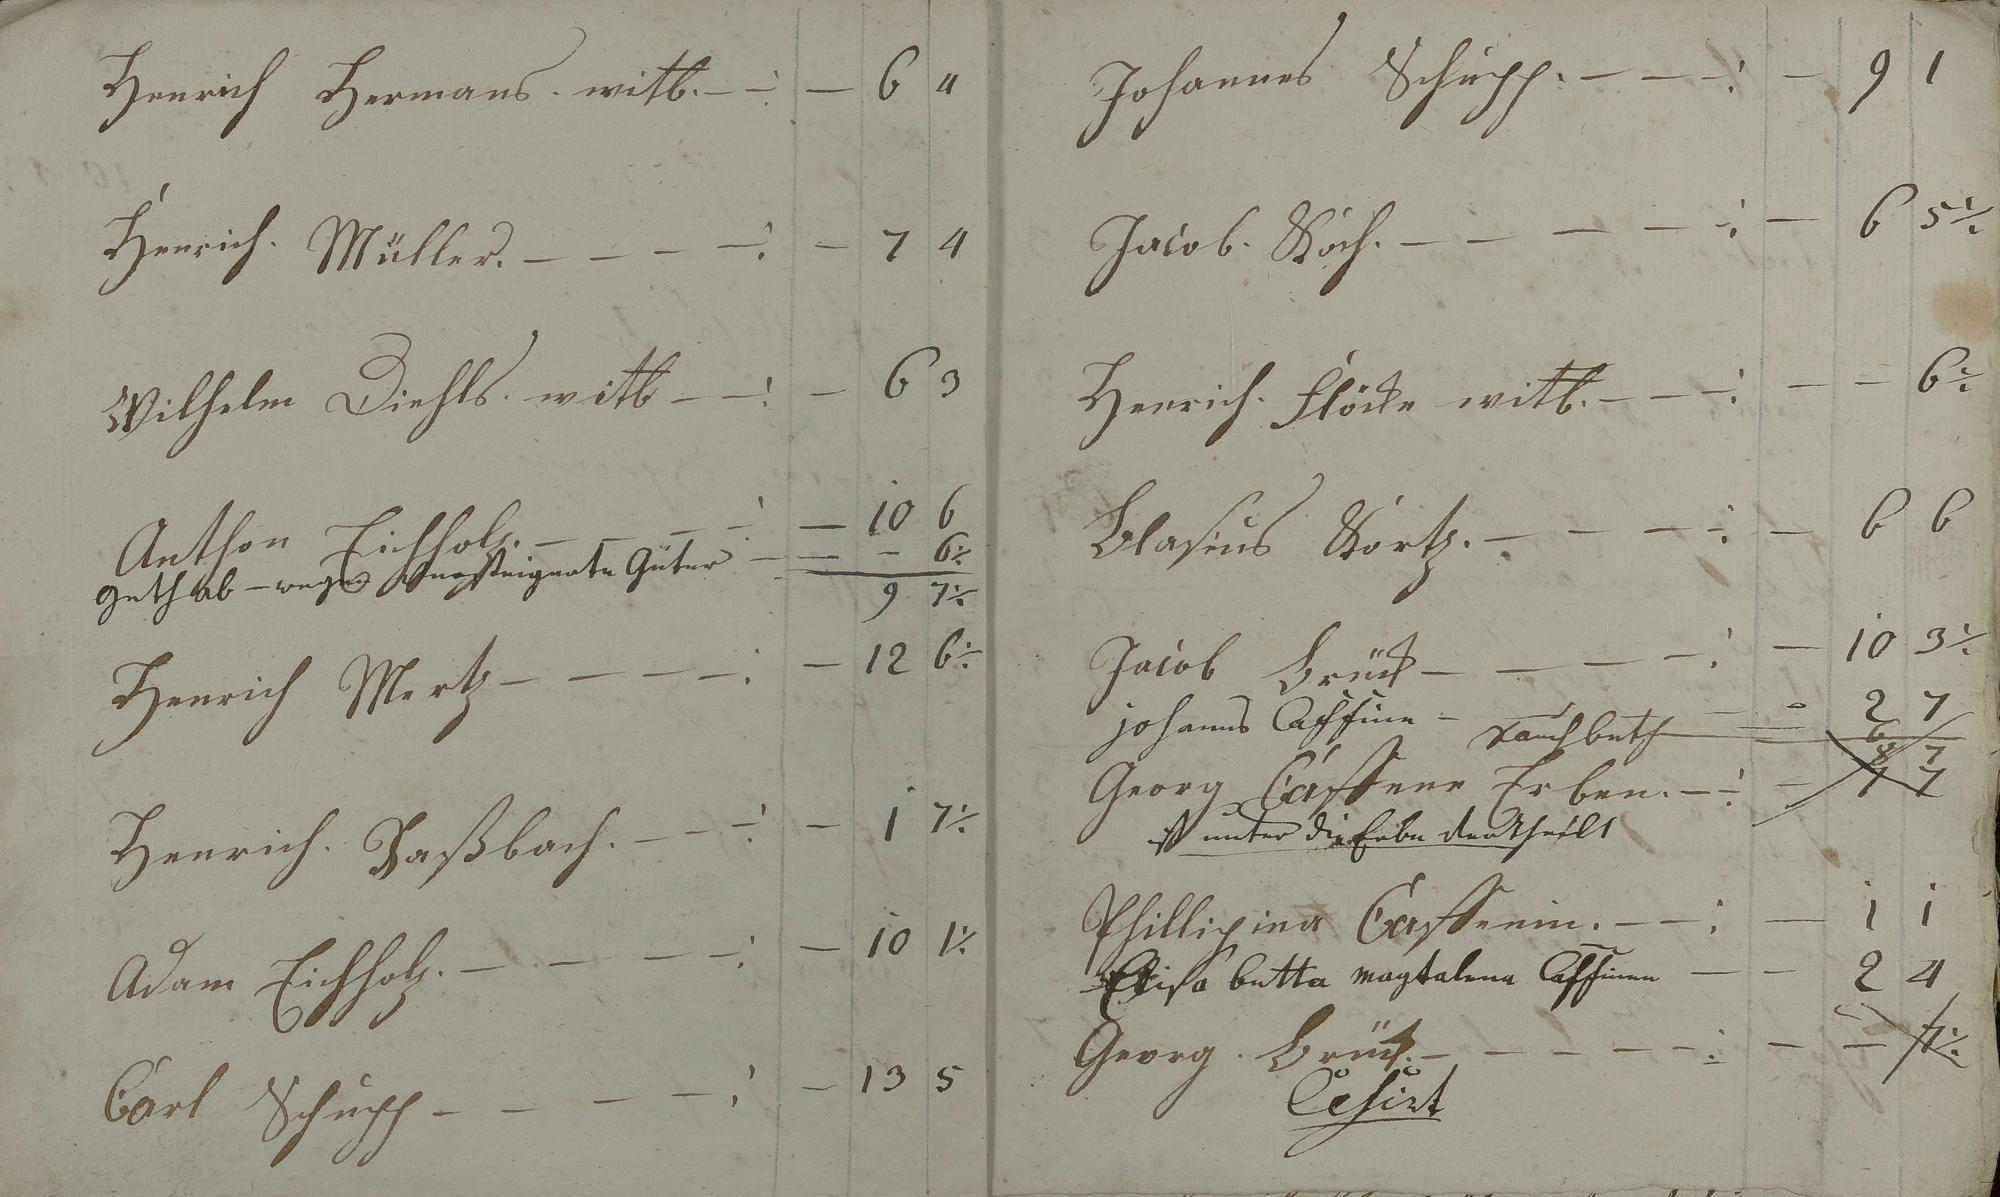 Henrich Hermans. witb. — — : — 6 4
Henrich. Müller. — — — — : — 7 4
Wilhelm Diehls. witb — — : — 6 3
Anthon Eichholz. — — — : — 10 6
geth ab — wegen versteigerte Güter — — — 6 ½
9 7 ½
Henrich Mertz — — — — : — 12 6 ½
Henrich. Paßbach. — — — : — 1 7 ½
Adam Eichholz. — — — — : — 10 1 ½
Carl Schupp — — — — : — 13 5
Johannes Schupp. — — — : — 9 1
Jacob. Koch. — — — — — : — 6 5 ½
Henrich. Flöcke witb. — — — : — — 6 ½
Blasius Kortz. — — — — : — 6 6
Jacob Brück — — — — : — 10 3 ½
johannes Cassine — 2 7
Georg Cassene Erben. — : — 7 7
ist unter die Erbe vertheilt
Phillipina Cassenin. — — : — 1 1
Elisa betta magtalena Cassinen — — 2 4
Georg. Brück. — — — — — : — — 7 ½
Cesirt